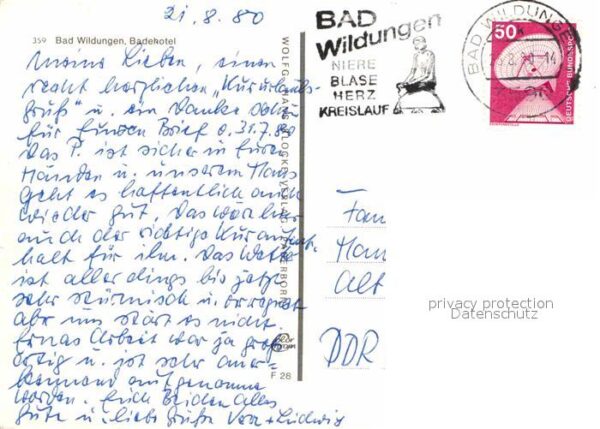 21.8.80
359 Bad Wildungen, Badehotel
Meine Lieben, einen
recht herzlichen "Kururlaubs-
gruß" u. ein Danke dafür
für Euren Brief v. 31.7.80
Das P. ist sicher in Euren
Händen u. unserem Hans
geht es hoffentlich auch
wieder gut. Das wär hier
auch der richtige Kuraufent-
halt für ihn. Das Wetter
ist allerdings bis jetzt
sehr stürmisch u. regnet
aber uns stört es nicht.
Ernas Arbeit war ja groß
artig u. ist sehr aner-
kennend aufgenommen
worden. Euch beiden alles
Gute u. liebe Grüße + Ludwig
WOLFGANG VERLAG PADERBORN
F 28
BAD
Wildungen
NIERE
BLASE
HERZ
KREISLAUF
BAD WILDUNGEN
50
DEUTSCHE BUNDESPOST
Fam
Han
Alt
DDR
privacy protection
Datenschutz